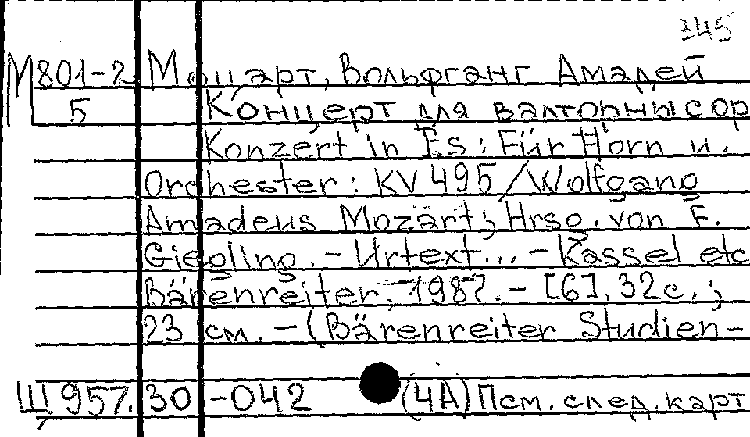 345
М801-2 Моцарт, Вольфганг Амадей
5 Концерт для валторны с ор
Konzert in Es: Für Horn u.
Orchester: KV 495 / Wolfgang
Amadeus Mozart; Hrsg. von F.
Giegling. - Urtext... - Kassel etc
Bärenreiter, 1987. - [6], 32 с.;
23 см. - (Bärenreiter Studien-
Щ 957.30-042 (4А) Псм. след. карт